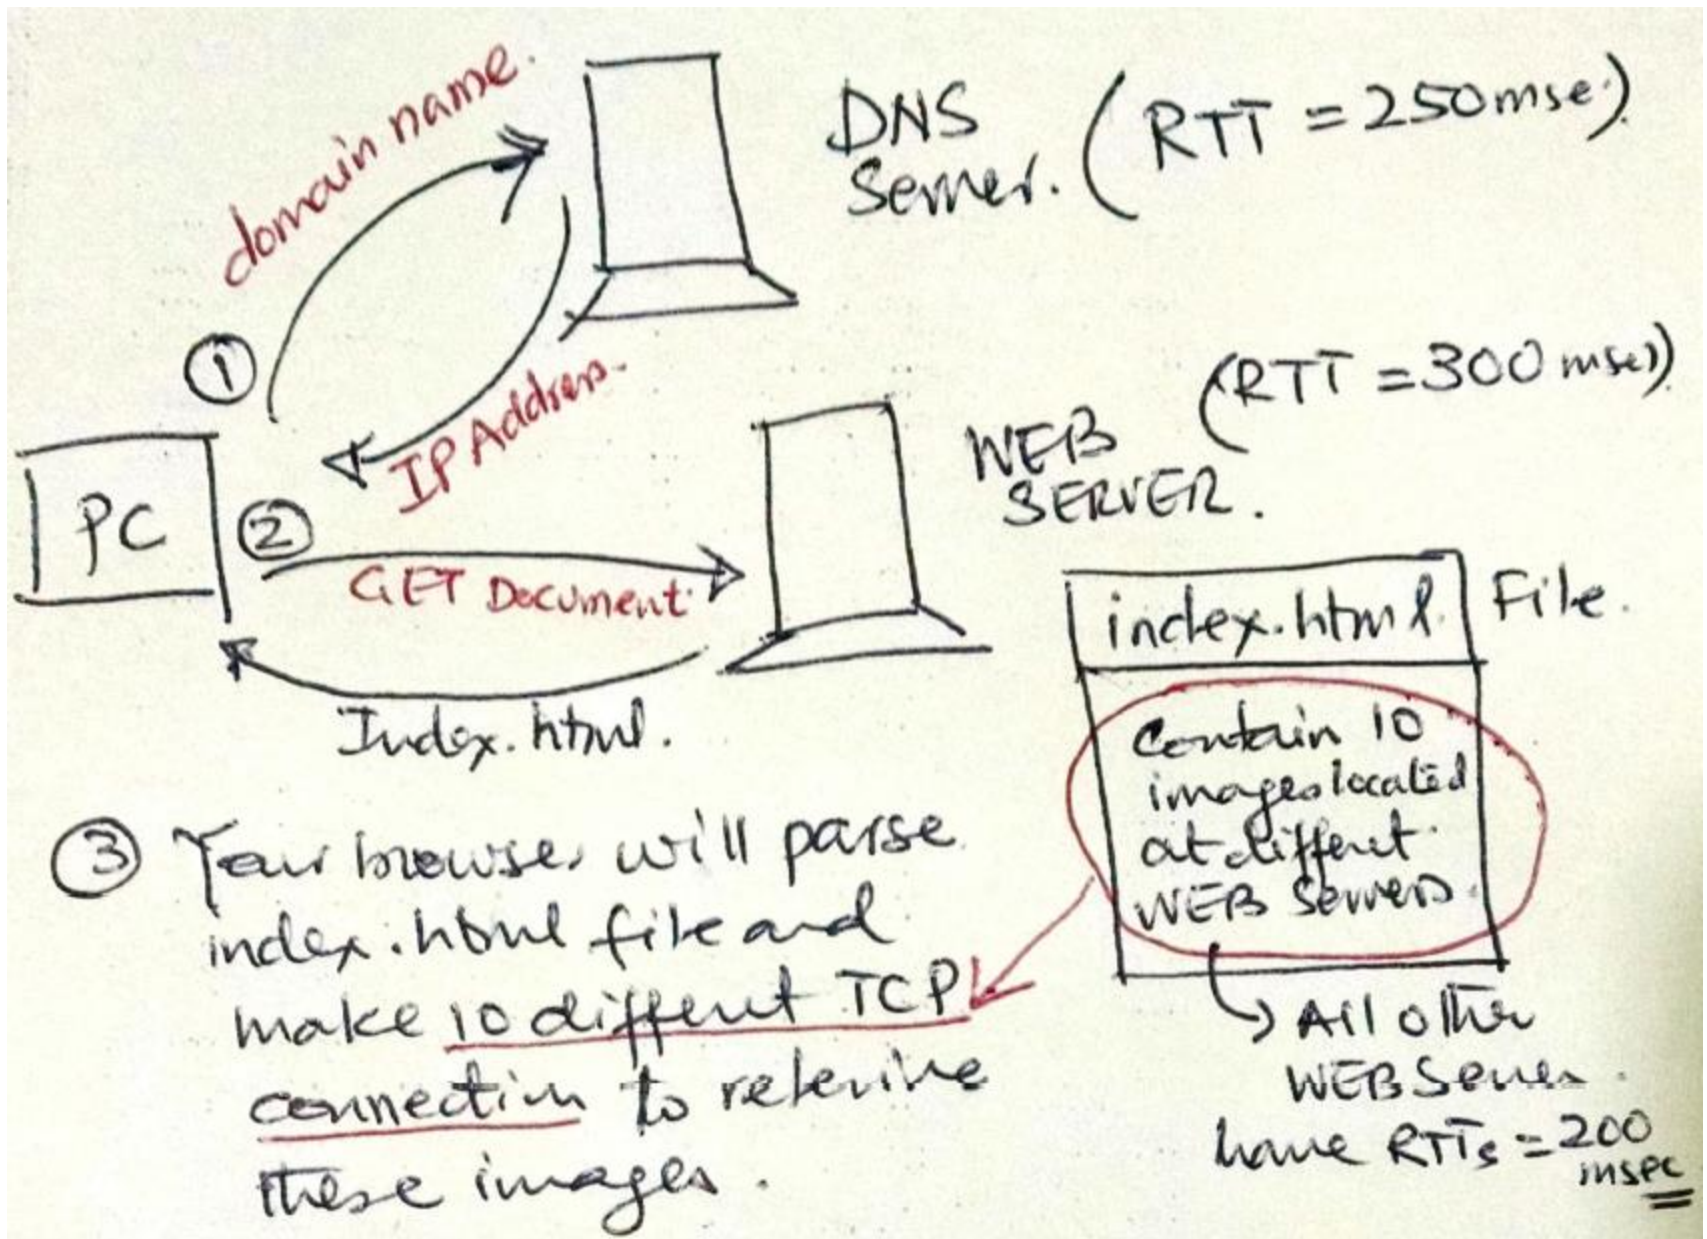 domain name.
DNS
Server.
(RTT = 250 mse)
①
IP Address.
(RTT = 300 msec)
WEB
SERVER.
PC
②
GET Document.
Index.html.
index.html.
File.
Contain 10
images located
at diffent
WEB Servers.
③ Your browser will parse
index.html file and
make 10 different TCP
connection to reterive
these images.
All other
WEB Server
have RTTs = 200
msec